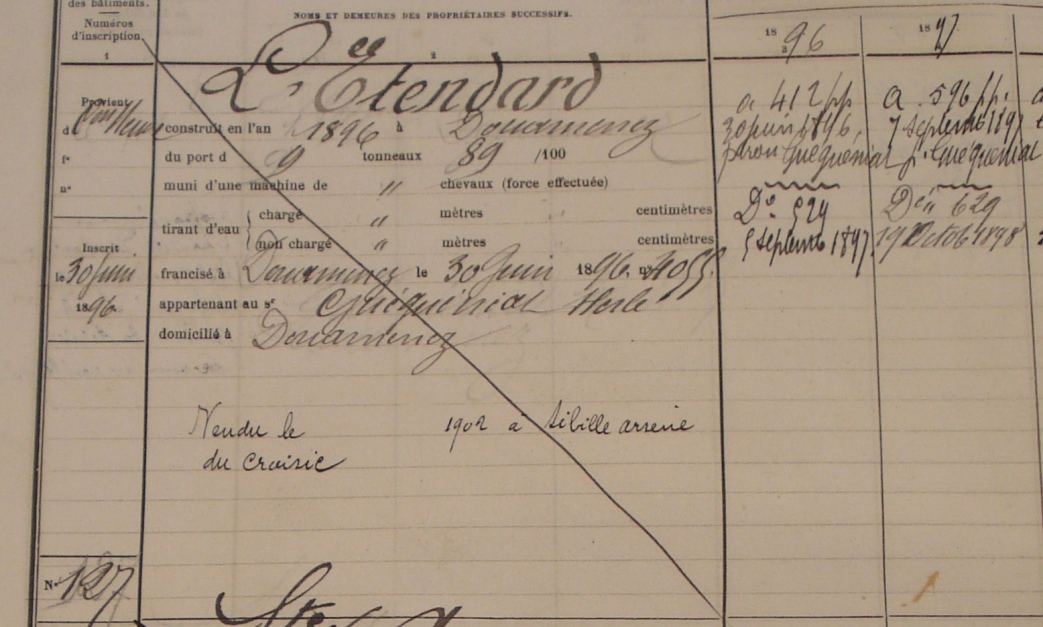 des bâtiments.
Numéros
d'inscription.
1
NOMS ET DEMEURES DES PROPRIÉTAIRES SUCCESSIFS.
2
L'Etendard
Provient
d
construit en l'an 1896 à Douarnenez
f°
du port d 9 tonneaux 89 /100
n°
muni d'une machine de " chevaux (force effectuée)
tirant d'eau { chargé " mètres " centimètres
non chargé " mètres centimètres
Inscrit
le 30 Juin
1896
francisé à Douarnenez le 30 Juin 1896 n°
appartenant au sr Guéguéniat Herlé
domicilié à Douarnenez
Vendu le 1902 à Sibille arsene
du Croisic
N° 127
1896
3
a 412 pp
30 juin 1896,
patron Guéguéniat
D° 529
5 Septembre 1897
1897
a 596 pp.
7 Septembre 1897
p. Guéguéniat
D° " 629
19 Octob 1898